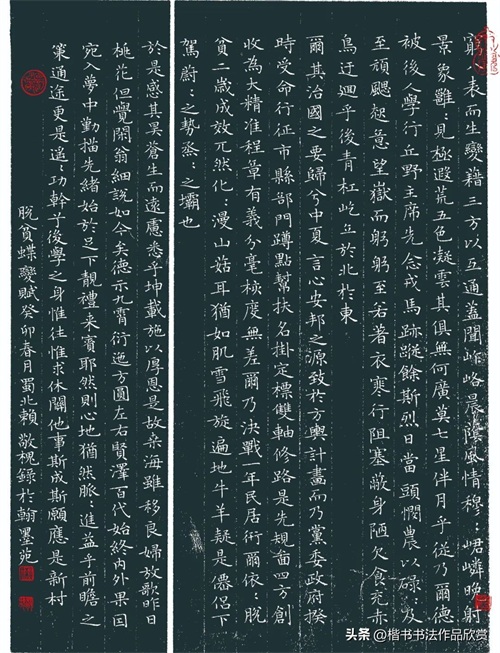 窮:表而生變藉三方以互通蓋聞峰峪晨霧風情穆 崌嶙晚射
景象雖:見極遐荒五色凝雲其俱無何廣莫七星伴月乎從乃爾德
被後人學行丘野主席先念戎馬跡蹤餘斯烈日當頭憫農以碌及
至頑颸意望嶽而躬躬至若著衣寒行阻塞敝身陋欠食充赤
烏迂迴乎後青杠屹立於北於東
爾其治國之要歸兮中夏言心安邦之源致於方輿計畫而乃黨委政府揆
時受命行征市縣部門蹲點幫扶名掛定標雙軸修路是先規畫四方創
收為大精准程章有義分毫極度無差爾乃決戰一年民居術爾依:脫
貧二歲成效兀然化:漫山菇耳猶如肌雪飛旋遍地牛羊疑是僊侶下
駕蔚:之勢烝:之壩也
於是感其異蒼生而遠慮悉乎坤載施以厚恩是故桑海雖移良婦放歌昨日
桃花但覺閤翁細說如今矣德示九霄衍迤方圓左右賢澤百代始終內外果因
宛入夢中勤描先緒始於足下靚禮來賓耶然則心地猶然脈:進益乎前瞻之
策通途更是遙:功幹乎後學之身惟往惟求休關他事斯成斯願應是新村
脫貧蝶變賦癸卯春月蜀北賴敬槐錄於翰墨苑
头条 @楷书书法作品欣赏